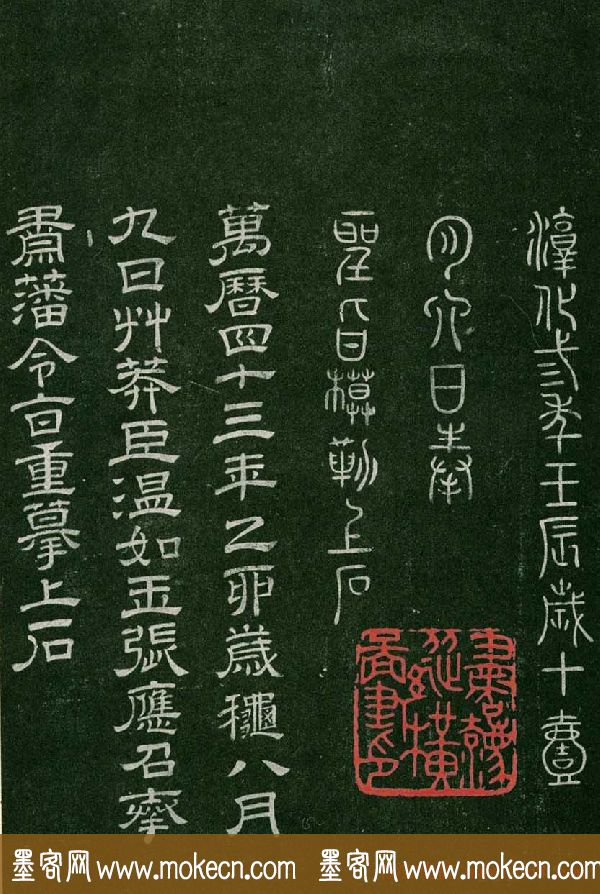 淳化三年壬辰歲十壹
月六日奉
聖旨模勒上石
萬曆四十三年乙卯歲龝八月
九日艸莽臣溫如玉張應召奉
肅藩令旨重摹上石
墨客网 www.mokecn.com 墨客网 www.mokecn.com